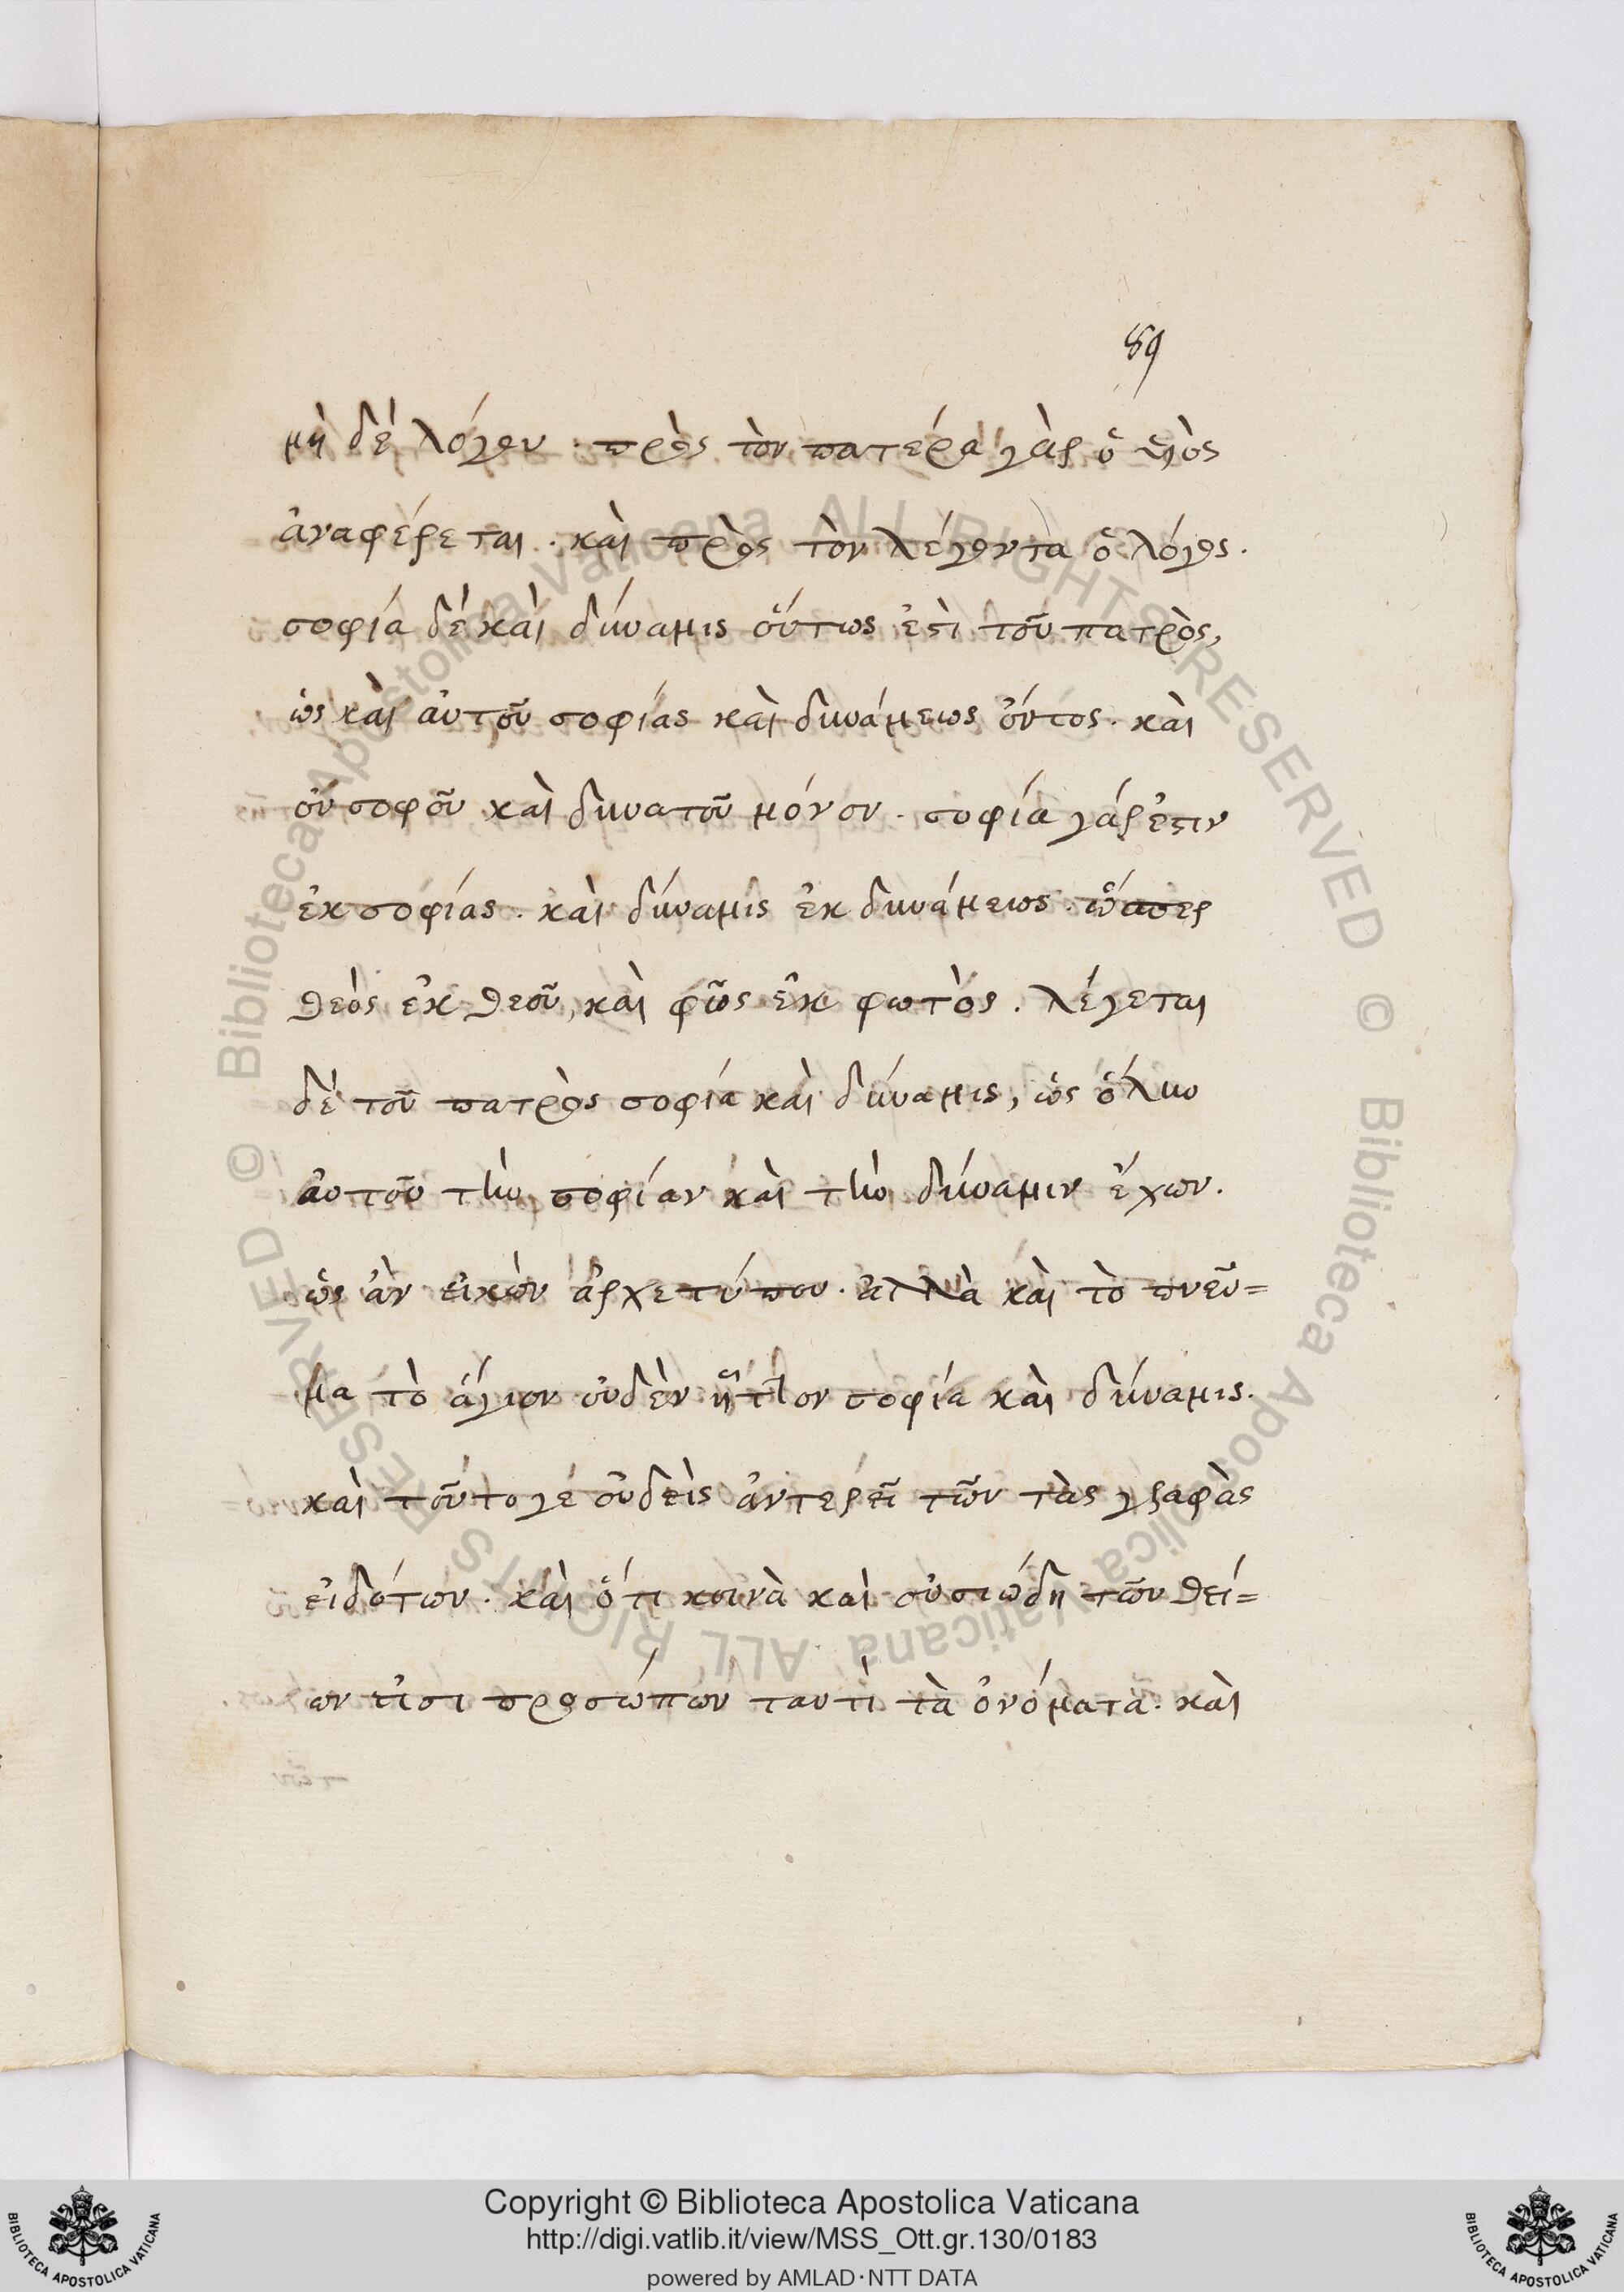 89
μὴ δέ λόγον · πρὸς τὸν πατέρα γὰρ ὁ υἱὸς
ἀναφέρεται · καὶ πρὸς τὸν λέγοντα ὁ λόγος ·
σοφία δέ καὶ δύναμις οὕτως ἐστὶ τοῦ πατρὸς,
ὡς καὶ αὐτοῦ σοφίας καὶ δυνάμεως ὄντος · καὶ
οὐ σοφοῦ καὶ δυνατοῦ μόνου · σοφία γάρ ἐστιν
ἐκ σοφίας · καὶ δύναμις ἐκ δυνάμεως · ὥσπερ
θεὸς ἐκ θεοῦ, καὶ φῶς ἐκ φωτὸς · λέγεται
δέ τοῦ πατρὸς σοφία καὶ δύναμις, ὡς ὅλην
αὐτοῦ τὴν σοφίαν καὶ τὴν δύναμιν ἔχων ·
ὡς ἀν εἰκὼν ἀρχετύπου · ἀλλὰ καὶ τὸ πνεῦ=
μα τὸ ἅγιον οὐδὲν ἧττον σοφία καὶ δύναμις ·
καὶ τοῦτο γέ οὐδεὶς ἀντερεῖ τῶν τὰς γραφὰς
εἰδότων · καὶ ὅτι κοινὰ καὶ οὐσιώδη τῶν θεί=
ων εἰσι προσώπων ταυτὶ τὰ ὀνόματα · καὶ
Copyright © Biblioteca Apostolica Vaticana
http://digi.vatlib.it/view/MSS_Ott.gr.130/0183
powered by AMLAD·NTT DATA
BIBLIOTECA APOSTOLICA VATICANA
BIBLIOTECA APOSTOLICA VATICANA
© Biblioteca Apostolica Vaticana ALL RIGHTS RESERVED © Biblioteca Apostolica Vaticana ALL RIGHTS RESERVED